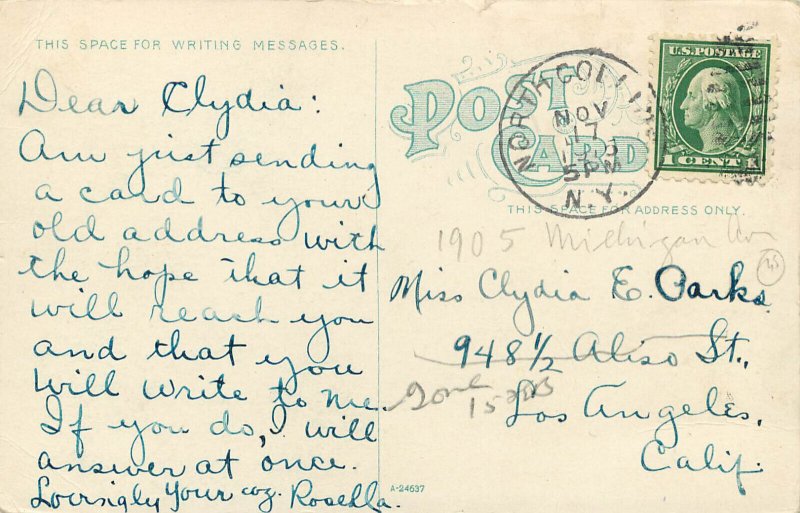 THIS SPACE FOR WRITING MESSAGES.
Dear Clydia:
Am just sending
a card to your
old address with
the hope that it
will reach you
and that you
will write to me.
If you do, I will
answer at once.
Lovingly Your coz. Rosella.
POST CARD
NORTH COLLINS
NOV
17
5 PM
N.Y.
U.S. POSTAGE
1 CENT 1
THIS SPACE FOR ADDRESS ONLY.
1905 Michigan Ave
45
Miss Clydia E. Parks
948½ Aliso St.,
Gone
Los Angeles,
Calif.
A-24637